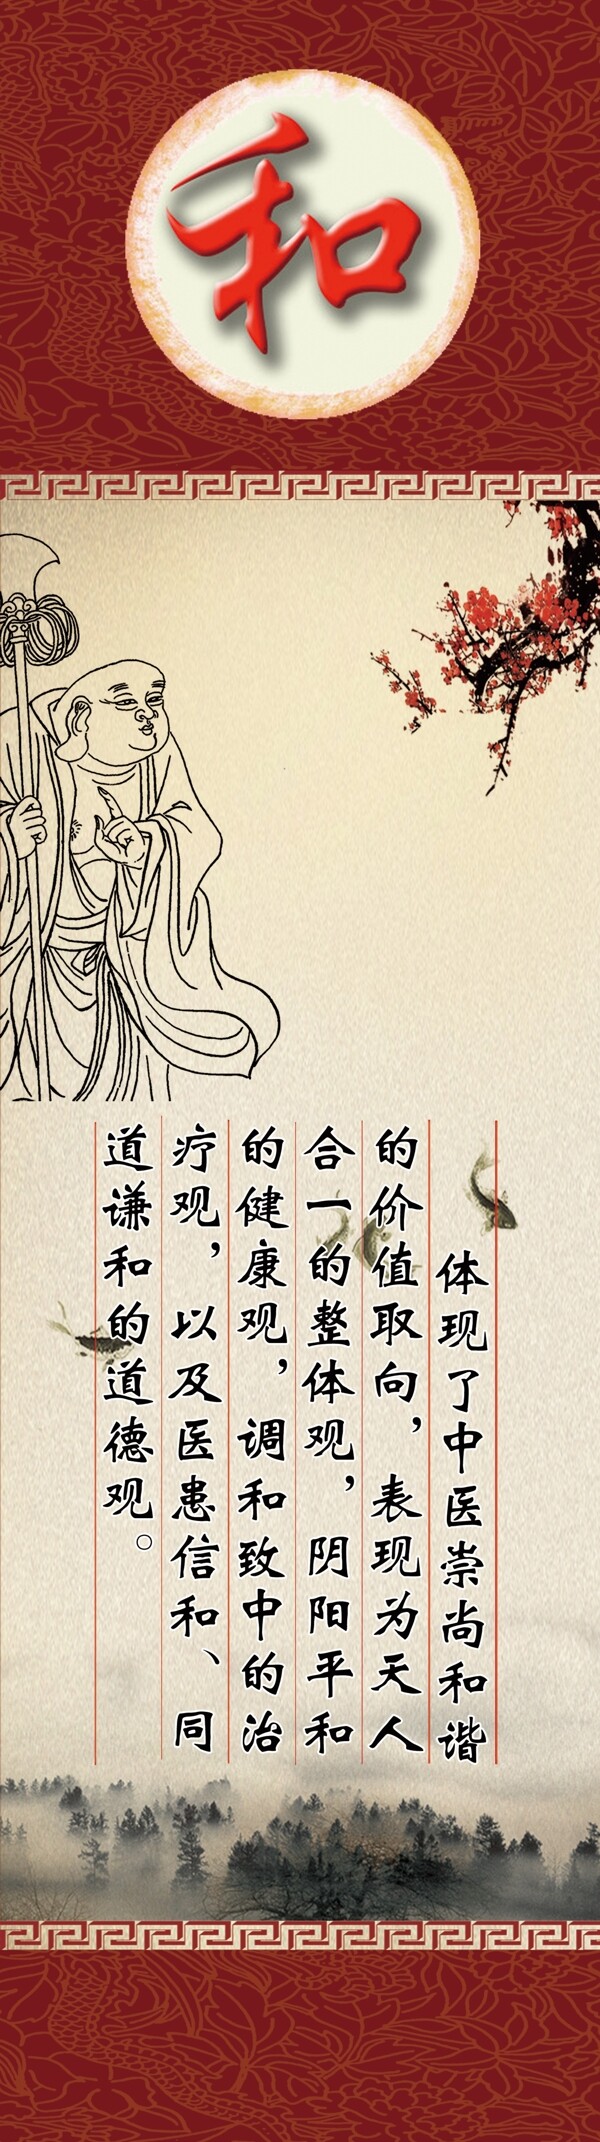 和
体现了中医崇尚和谐
的价值取向，表现为天人
合一的整体观，阴阳平和
的健康观，调和致中的治
疗观，以及医患信和、同
道谦和的道德观。